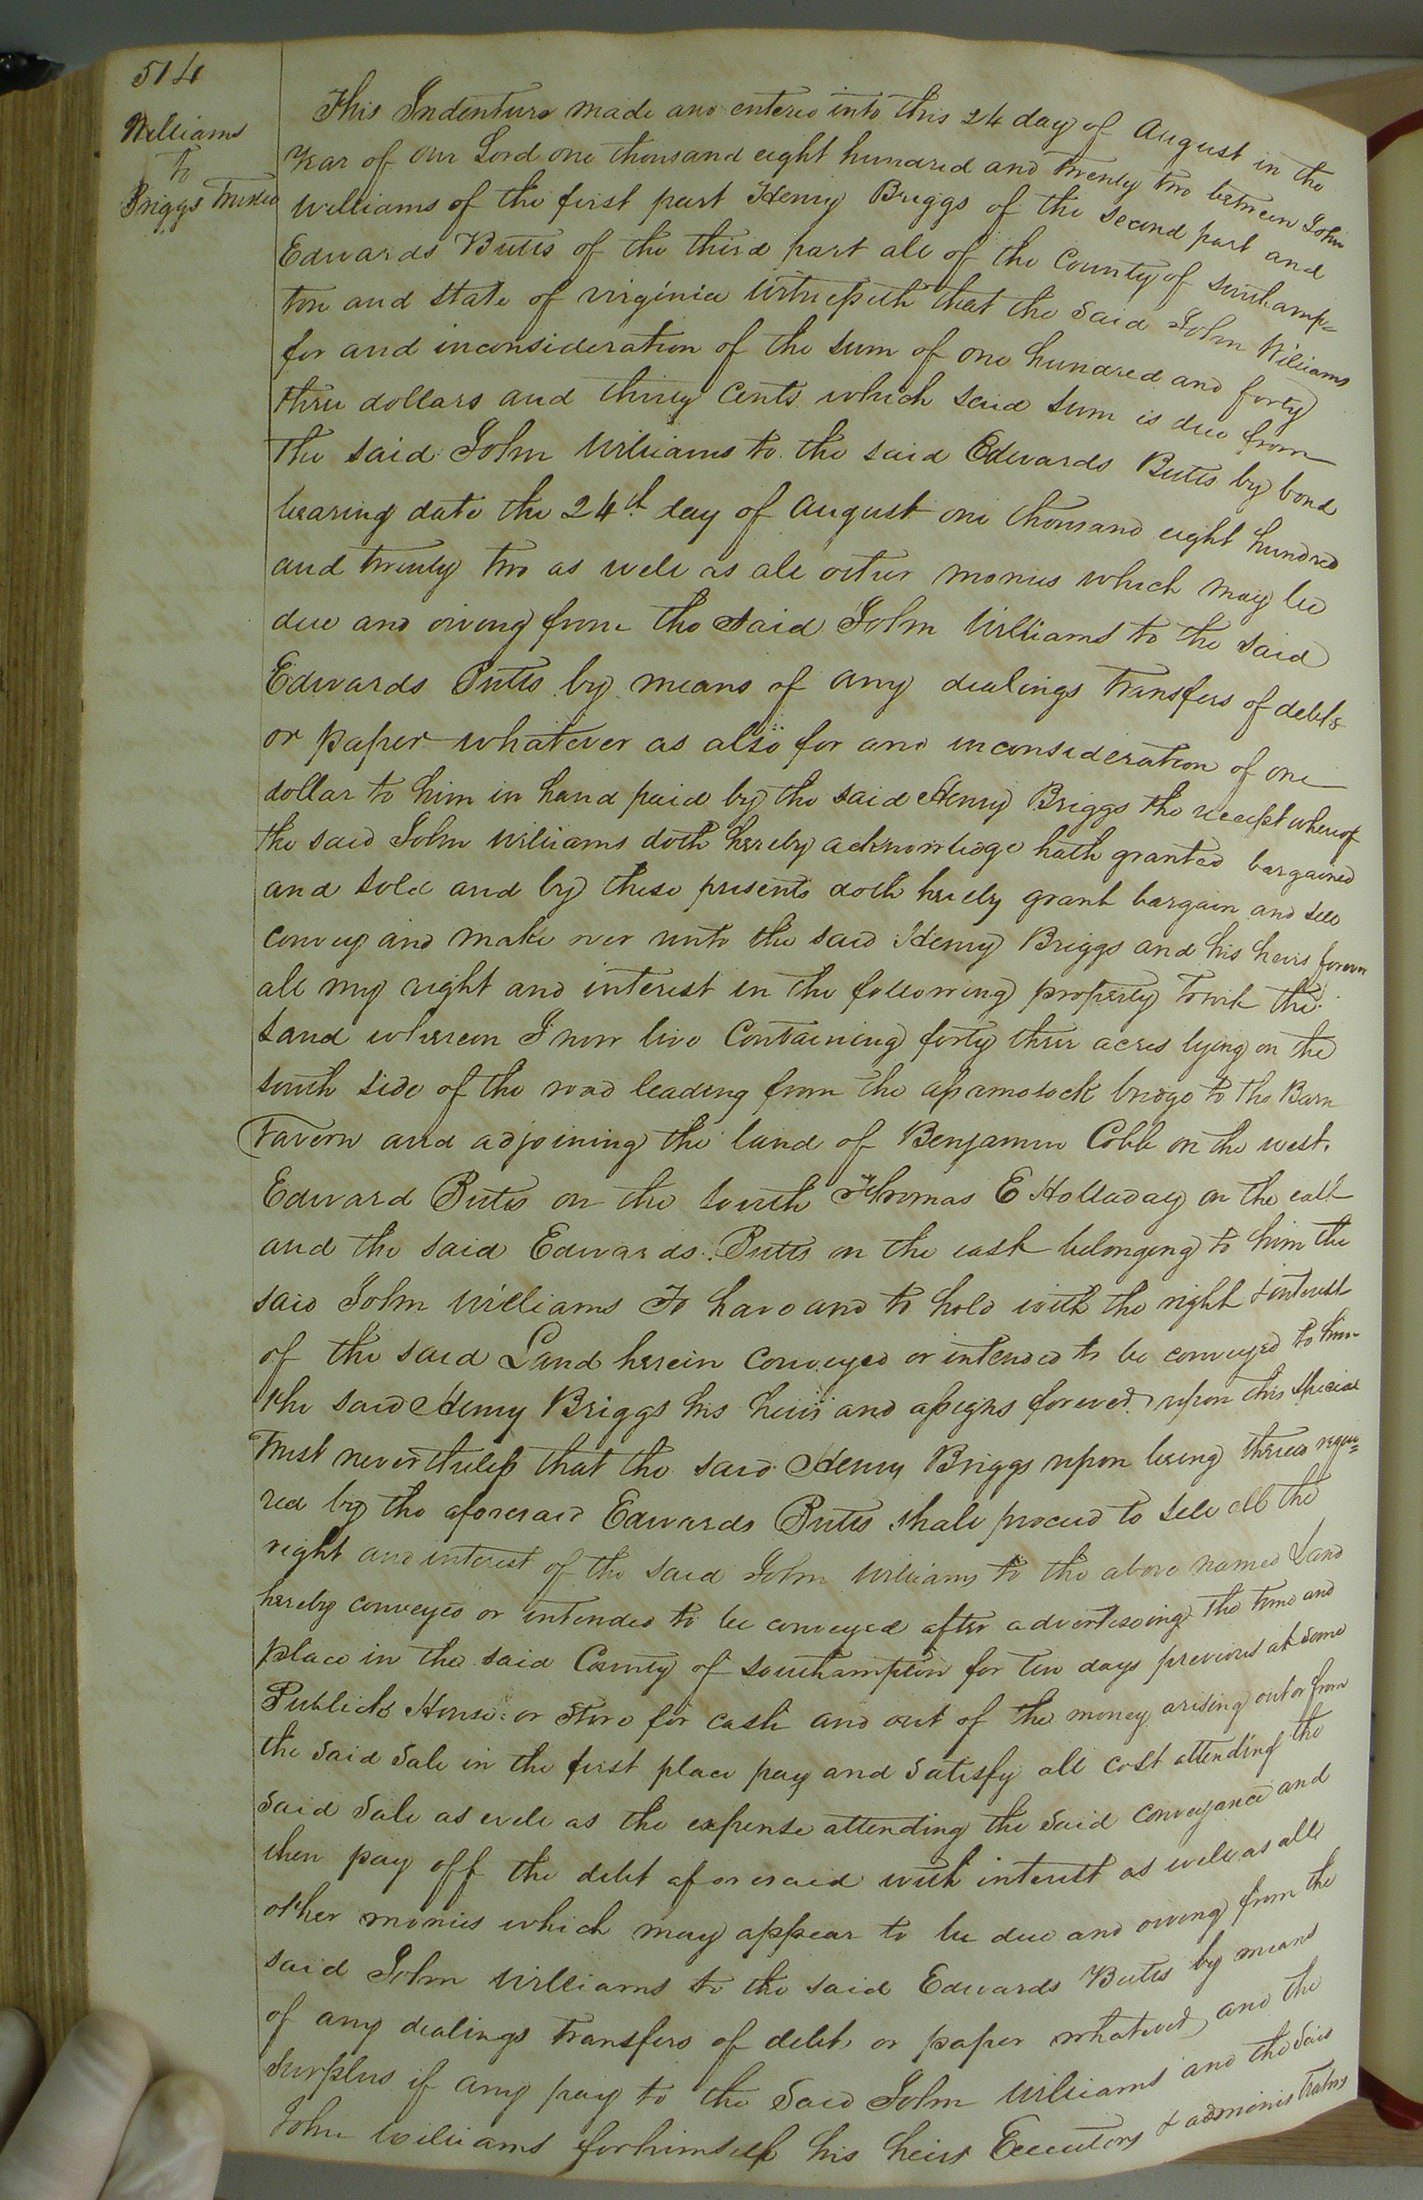 514
Williams
to
Briggs Trustee
This Indenture made and entered into this 24 day of August in the
Year of Our Lord one thousand eight hundred and twenty two between John
Williams of the first part Henry Briggs of the second part and
Edwards Butts of the third part all of the County of Southamp=
ton and State of Virginia Witnesseth that the said John Williams
for and inconsideration of the sum of one hundred and forty
three dollars and thirty Cents which said sum is due from
the said John Williams to the said Edwards Butts by bond
bearing date the 24th day of August one thousand eight hundred
and twenty two as well as all other monies which may be
due and owing from the said John Williams to the said
Edwards Butts by means of any dealings transfers of debts
or paper whatever as also for and inconsideration of one
dollar to him in hand paid by the said Henry Briggs the receipt whereof
the said John Williams doth hereby acknowledge hath granted bargained
and sold and by these presents doth hereby grant bargain and sell
convey and make over unto the said Henry Briggs and his heirs forever
all my right and interest in the following property towit the
Land whereon I now live Containing forty three acres lying on the
South side of the road leading from the bridge to the Barn
Tavern and adjoining the land of Benjamin Cobb on the west.
Edward Butts on the South Thomas E Holladay on the east
and the said Edwards Butts on the east belonging to him the
said John Williams To have and to hold with the right & interest
of the said Land herein Conveyed or intended to be conveyed to him
the said Henry Briggs his heirs and assigns forever upon this special
Trust nevertheless that the said Henry Briggs upon being thereto requi=
red by the aforesaid Edwards Butts shall proceed to sell all the
right and interest of the said John Williams to the above named Land
hereby conveyed or intended to be conveyed after advertiseing the time and
place in the said County of Southampton for ten days previous at some
Publick House or Store for cash and out of the money arising out or from
the said Sale in the first place pay and Satisfy all cost attending the
Said Sale as well as the expense attending the said Conveyance and
then pay off the debt aforesaid with interest as well as all
other monies which may appear to be due and owing from the
said John Williams to the said Edwards Butts by means
of any dealings transfers of debt or paper whatever and the
Surplus if any pay to the Said John Williams and the Said
John Williams forhimself his heirs Executors & administrators